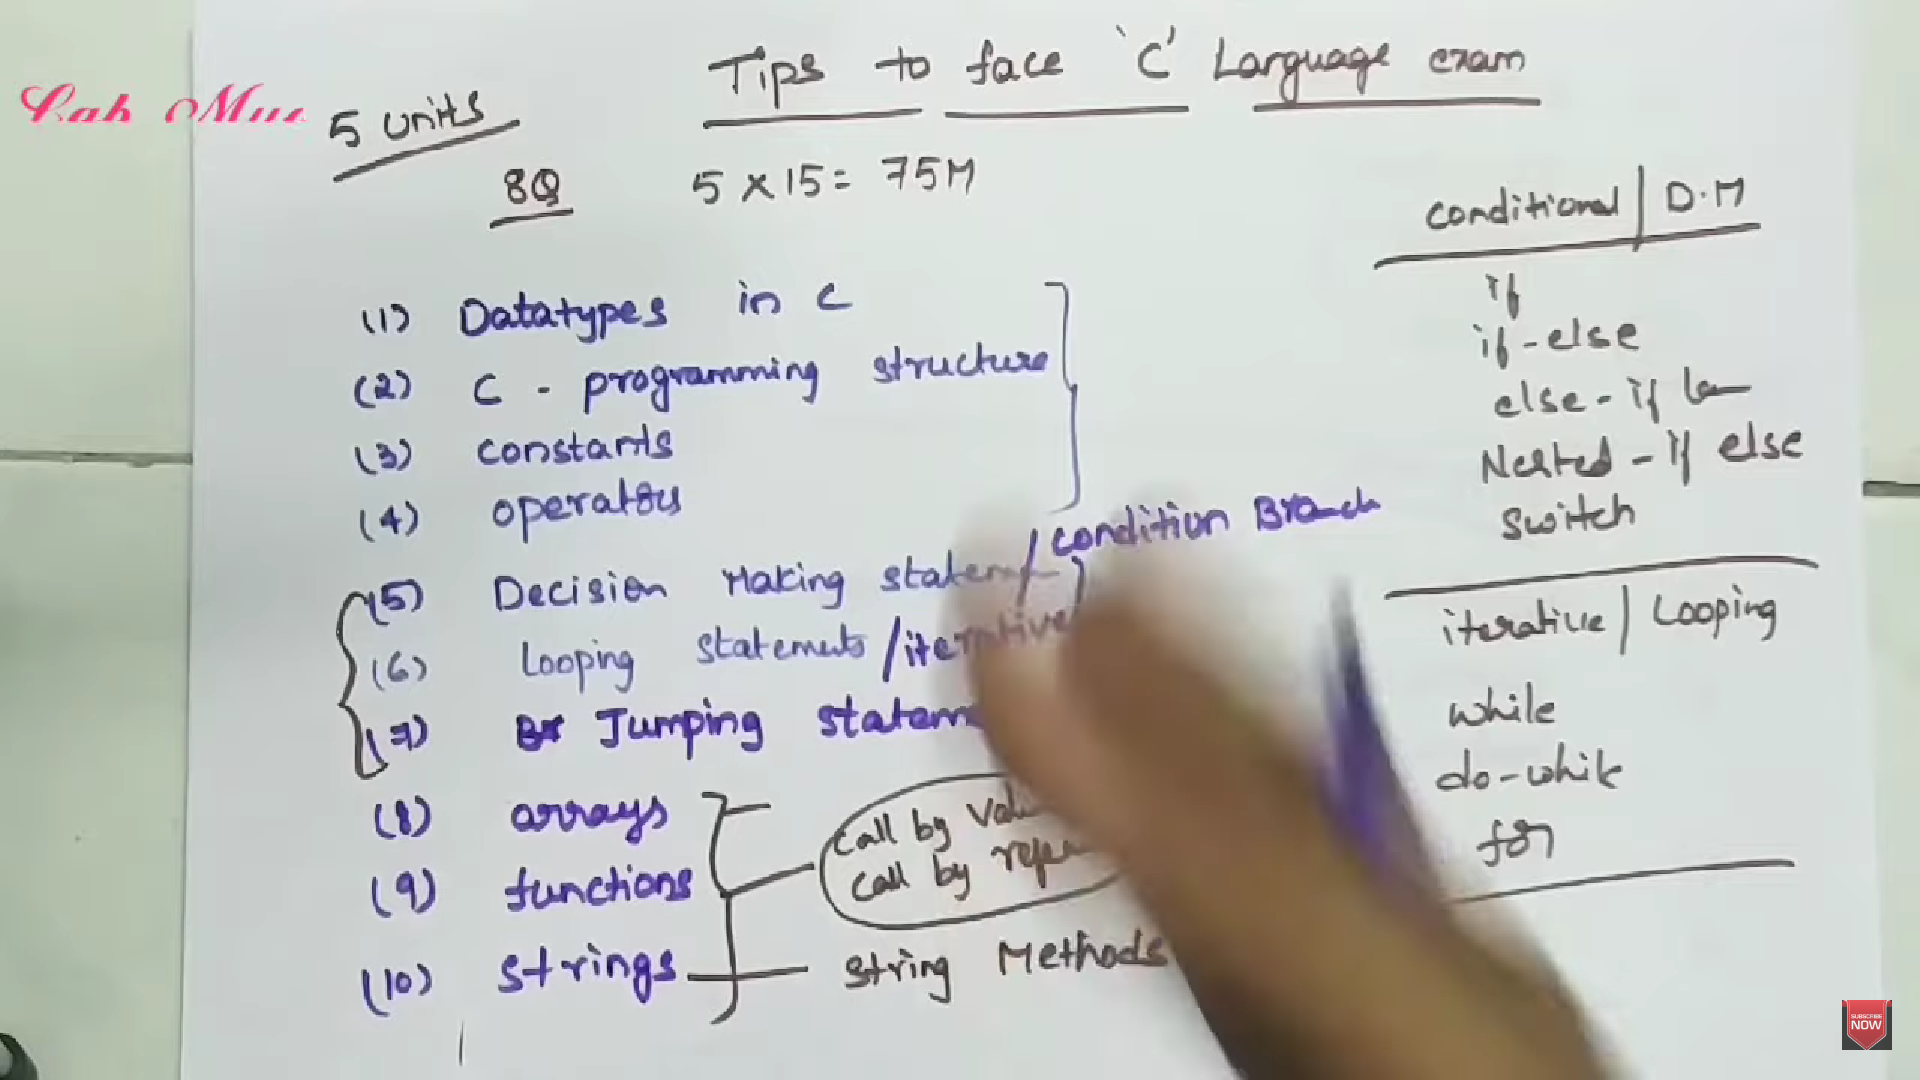 Tips to face 'C' Language exam
5 units
8Q
5 x 15 = 75M
(1) Datatypes in C
(2) C - programming structure
(3) constants
(4) operators
(5) Decision Making / condition Branch
(6) Looping statements / iterative
(7) Jumping
(8) arrays
(9) functions
call by
call by
(10) strings
String Methods
conditional / D.M
if
if-else
else-if
Nested - if else
Switch
iterative / Looping
while
do-while
for
SUBSCRIBE
NOW